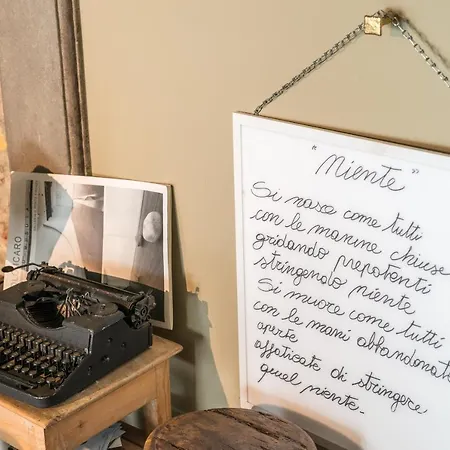 "Niente"
Si nasce come tutti
con le manine chiuse
gridando prepotenti
stringendo niente
Si muore come tutti
con le mani abbandonate
aperte
affaticate di stringere
quel niente.
ICARO